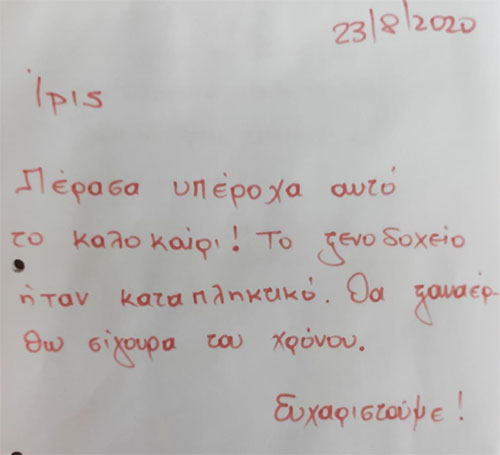 23/8/2020
Ίρις
Πέρασα υπέροχα αυτό
το καλοκαίρι! Το ξενοδοχείο
ήταν καταπληκτικό. Θα ξαναέρ-
θω σίγουρα του χρόνου.
Ευχαριστούμε!